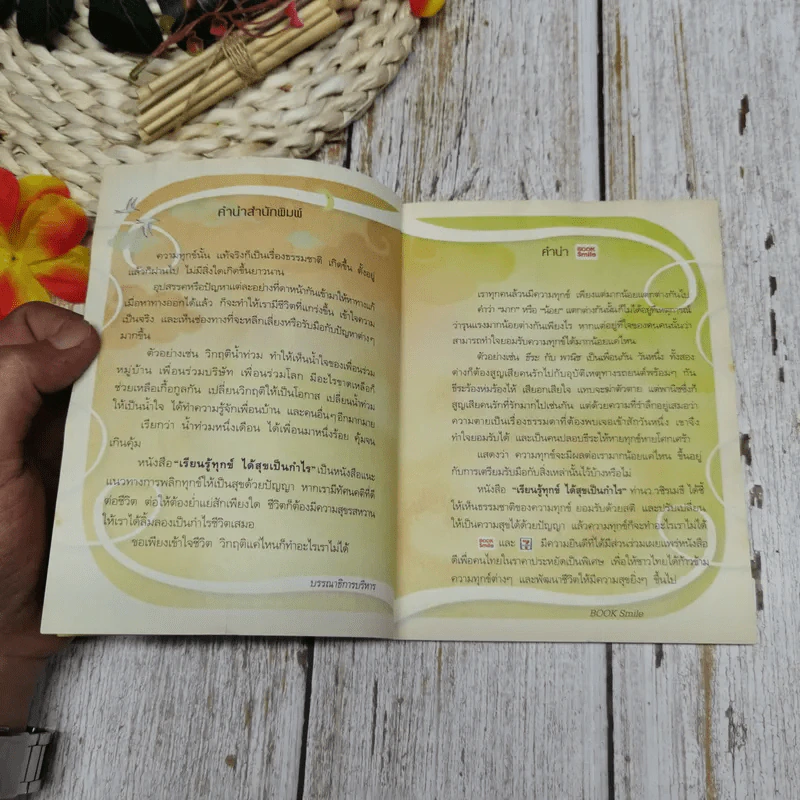 คำนำสำนักพิมพ์
ความทุกข์นั้น แท้จริงก็เป็นเรื่องธรรมชาติ เกิดขึ้น ตั้งอยู่
แล้วก็ผ่านไป ไม่มีสิ่งใดเกิดขึ้นยาวนาน
อุปสรรคหรือปัญหาแต่ละอย่างที่ดาหน้ากันเข้ามาให้หาทางแก้
เมื่อหาทางออกได้แล้ว ก็จะทำให้เรามีชีวิตที่แกร่งขึ้น เข้าใจความ
เป็นจริง และเห็นช่องทางที่จะหลีกเลี่ยงหรือรับมือกับปัญหาต่างๆ
มากขึ้น
ตัวอย่างเช่น วิกฤติน้ำท่วม ทำให้เห็นน้ำใจของเพื่อนร่วม
หมู่บ้าน เพื่อนร่วมบริษัท เพื่อนร่วมโลก มีอะไรขาดเหลือก็
ช่วยเหลือเกื้อกูลกัน เปลี่ยนวิกฤติให้เป็นโอกาส เปลี่ยนน้ำท่วม
ให้เป็นน้ำใจ ได้ทำความรู้จักเพื่อนบ้าน และคนอื่นๆ อีกมากมาย
เรียกว่า น้ำท่วมหนึ่งเดือน ได้เพื่อนมาหนึ่งร้อย คุ้มจน
เกินคุ้ม
หนังสือ "เรียนรู้ทุกข์ ได้สุขเป็นกำไร" เป็นหนังสือแนะ
แนวทางการพลิกทุกข์ให้เป็นสุขด้วยปัญญา หากเรามีทัศนคติที่ดี
ต่อชีวิต ต่อให้ต้องย่ำแย่สักเพียงใด ชีวิตก็ต้องมีความสุขรสหวาน
ให้เราได้ลิ้มลองเป็นกำไรชีวิตเสมอ
ขอเพียงเข้าใจชีวิต วิกฤติแค่ไหนก็ทำอะไรเราไม่ได้
บรรณาธิการบริหาร
คำนำ BOOK Smile
เราทุกคนล้วนมีความทุกข์ เพียงแต่มากน้อยแตกต่างกันไป
คำว่า "มาก" หรือ "น้อย" แตกต่างกันนั้นก็ไม่ได้อยู่ที่เหตุการณ์
ว่ารุนแรงมากน้อยต่างกันเพียงไร หากแต่อยู่ที่ใจของคนคนนั้นว่า
สามารถทำใจยอมรับความทุกข์ได้มากน้อยแค่ไหน
ตัวอย่างเช่น ธีระ กับ พาณิช เป็นเพื่อนกัน วันหนึ่ง ทั้งสอง
ต่างก็ต้องสูญเสียคนรักไปกับอุบัติเหตุทางรถยนต์พร้อมๆ กัน
ธีระร้องห่มร้องไห้ เสียอกเสียใจ แทบจะฆ่าตัวตาย แต่พาณิชซึ่งก็
สูญเสียคนรักที่รักมากไปเช่นกัน แต่ด้วยความที่รำลึกอยู่เสมอว่า
ความตายเป็นเรื่องธรรมดาที่ต้องพบเจอเข้าสักวันหนึ่ง เขาจึง
ทำใจยอมรับได้ และเป็นคนปลอบธีระให้หายทุกข์หายโศกเศร้า
แสดงว่า ความทุกข์จะมีผลต่อเรามากน้อยแค่ไหน ขึ้นอยู่
กับการเตรียมรับมือกับสิ่งเหล่านั้นไว้บ้างหรือไม่
หนังสือ "เรียนรู้ทุกข์ ได้สุขเป็นกำไร" ท่านว.วชิรเมธี ได้ชี้
ให้เห็นธรรมชาติของความทุกข์ ยอมรับด้วยสติ และปรับเปลี่ยน
ให้เป็นความสุขได้ด้วยปัญญา แล้วความทุกข์ก็จะทำอะไรเราไม่ได้
และ มีความยินดีที่ได้มีส่วนร่วมเผยแพร่หนังสือ
ดีเพื่อคนไทยในราคาประหยัดเป็นพิเศษ เพื่อให้ชาวไทยได้ก้าวข้าม
ความทุกข์ต่างๆ และพัฒนาชีวิตให้มีความสุขยิ่งๆ ขึ้นไป
BOOK Smile